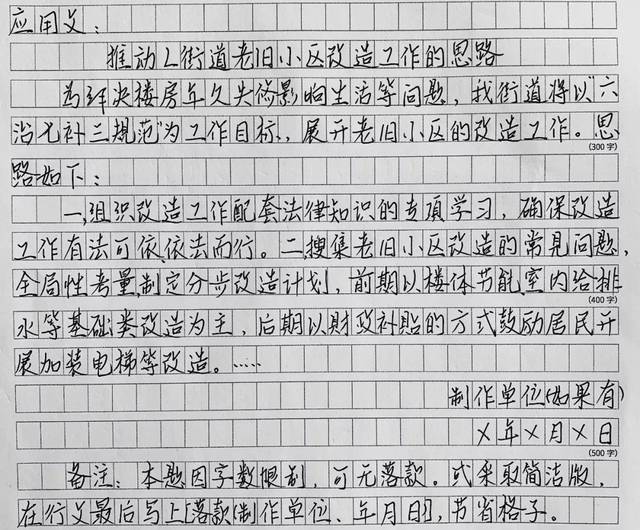 应用文：
推动L街道老旧小区改造工作的思路
为解决楼房年久失修影响生活等问题，我街道将以“六
治七补三规范”为工作目标，展开老旧小区的改造工作。思
(300字)
路如下：
一，组织改造工作配套法律知识的专项学习，确保改造
工作有法可依、依法而行。二搜集老旧小区改造的常见问题，
全局性考量，制定分步改造计划，前期以楼体节能、室内给排
(400字)
水等基础类改造为主，后期以财政补贴的方式鼓励居民开
展加装电梯等改造。……
制作单位(如果有)
X年X月X日
(500字)
备注：本题因字数限制，可无落款。或采取简洁版，
在行文最后写上[落款(制作单位、年月日)]，节省格子。